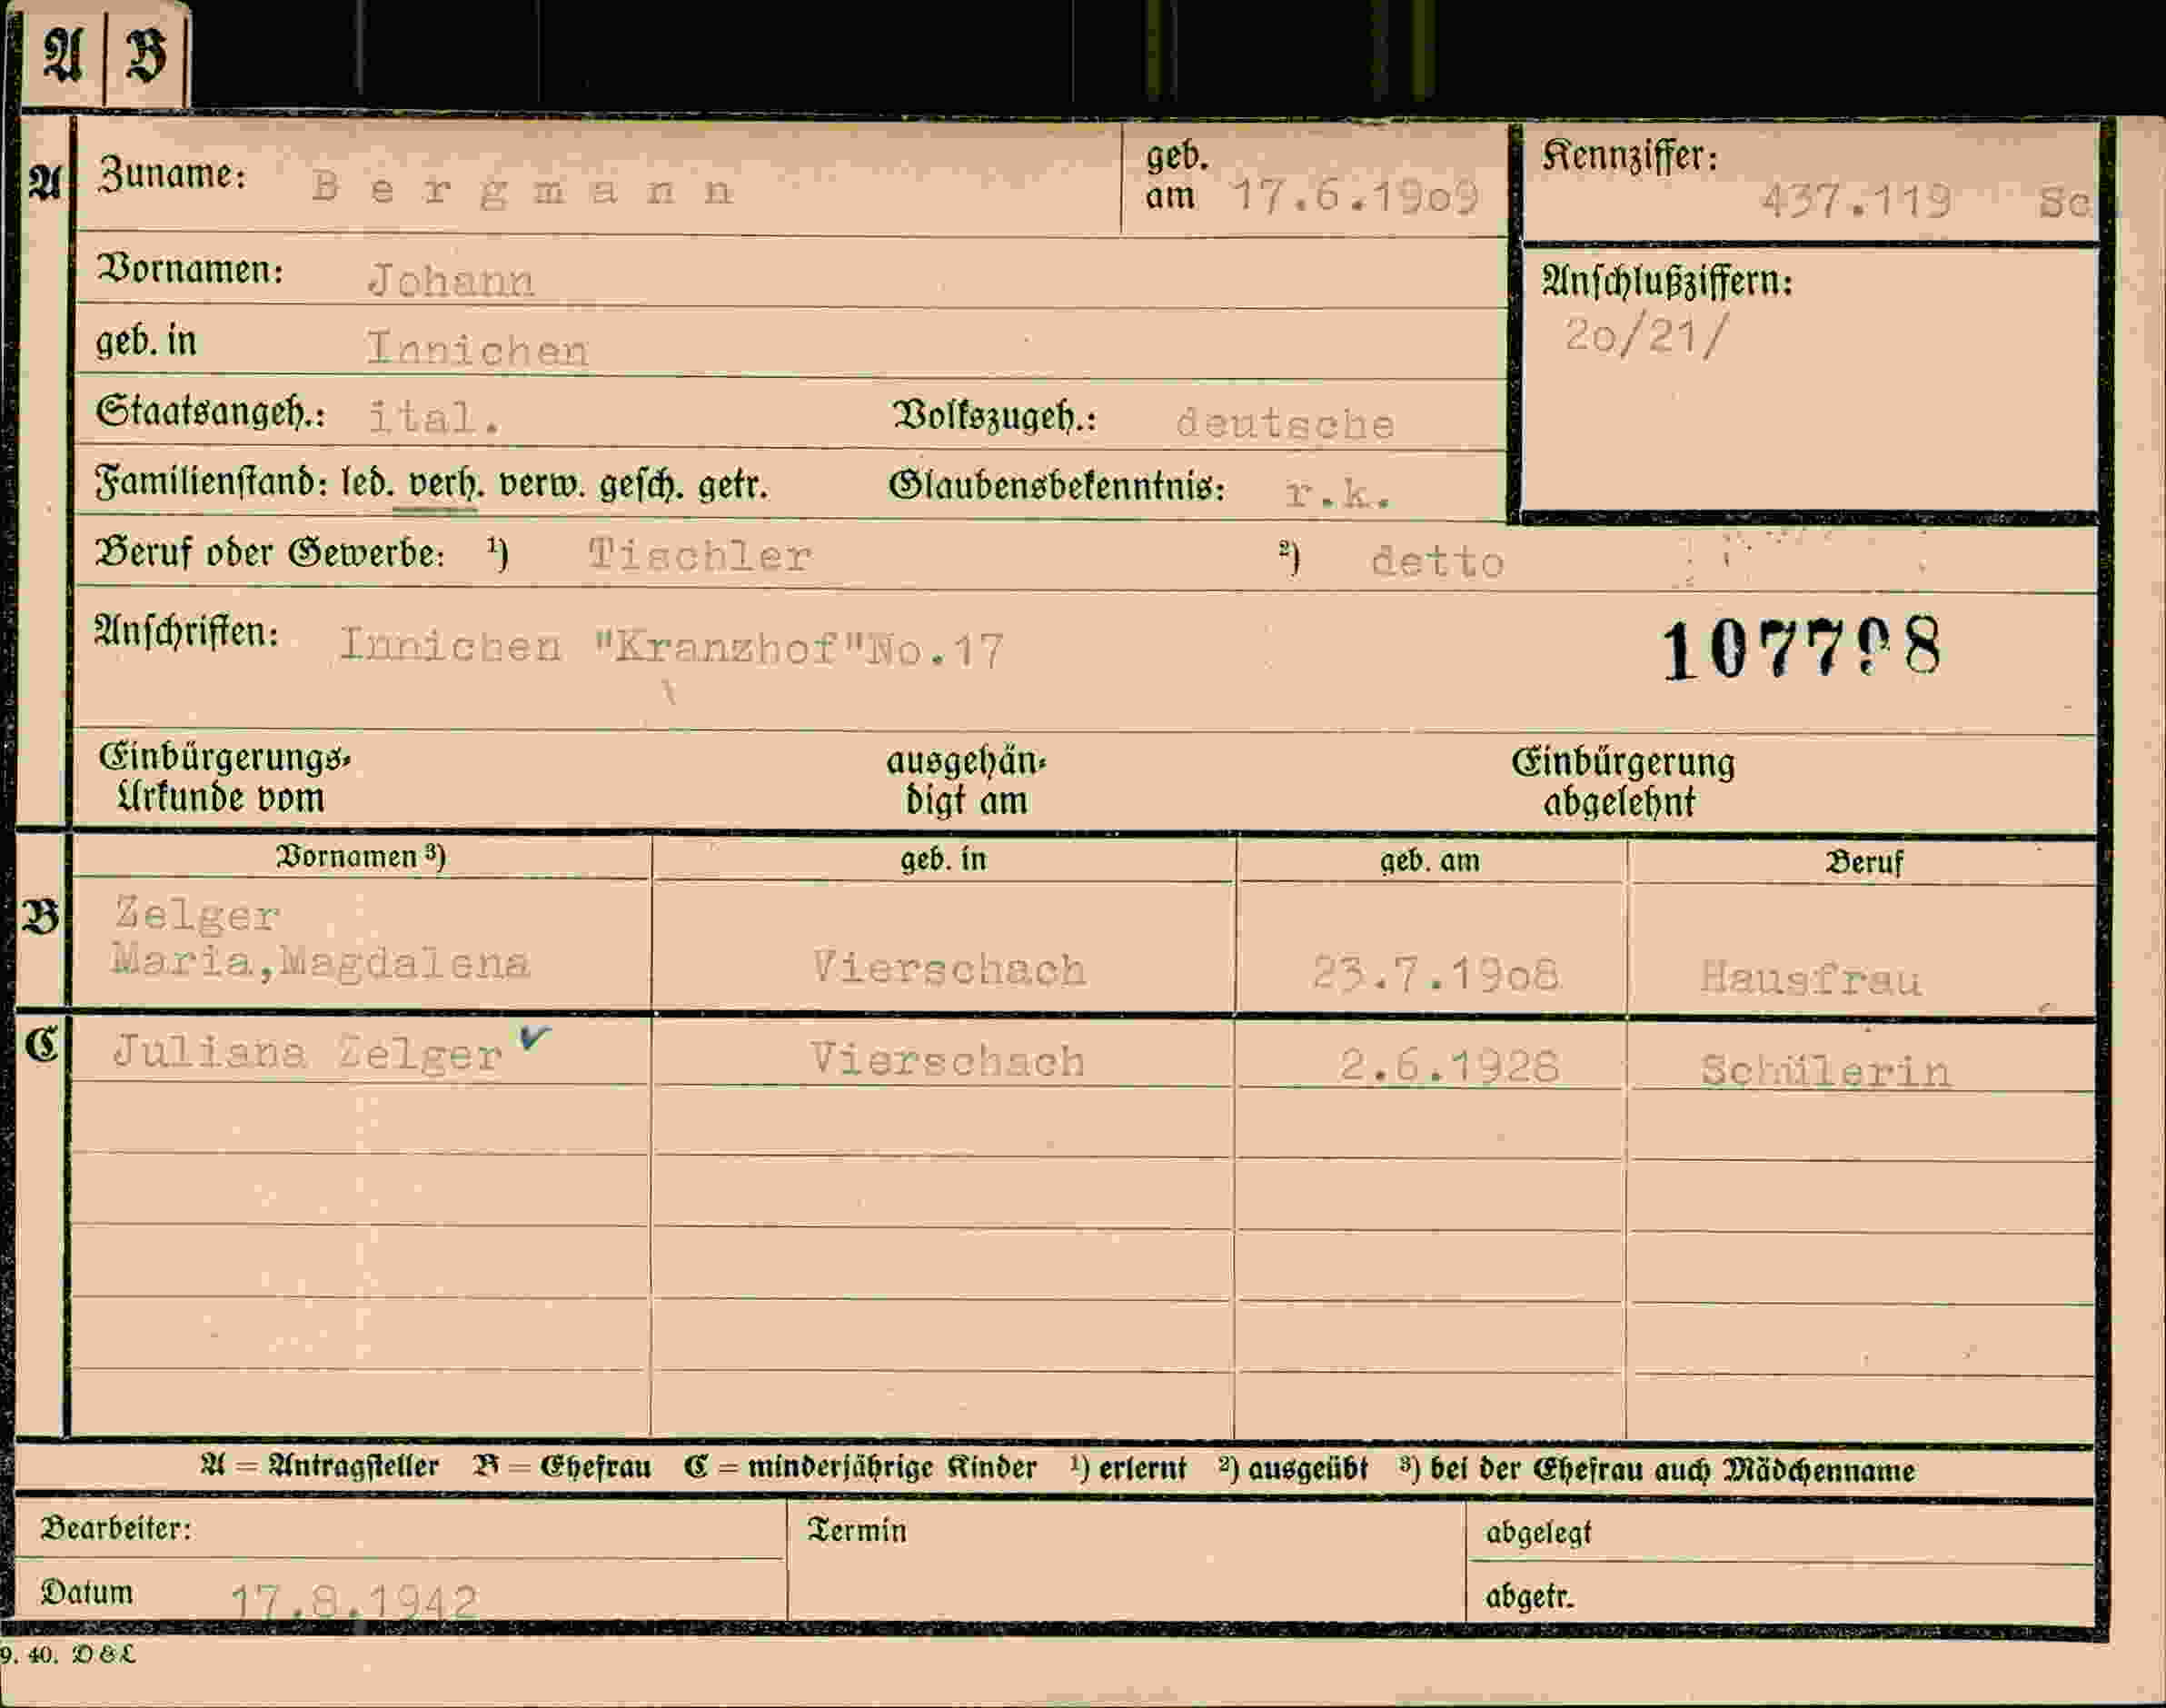 A B
A Zuname: Bergmann geb. am 17.6.19o9 Kennziffer: 437.119 Sc
Vornamen: Johann Anschlußziffern:
2o/21/
geb. in Innichen
Staatsangeh.: ital. Volkszugeh.: deutsche
Familienstand: led. verh. verw. gesch. getr. Glaubensbekenntnis: r.k.
Beruf oder Gewerbe: ¹) Tischler ²) detto
Anschriften: Innichen "Kranzhof"No.17
Einbürgerungs- ausgehän- Einbürgerung
Urkunde vom digt am abgelehnt
Vornamen ³) geb. in geb. am Beruf
B Zelger
Maria,Magdalena Vierschach 23.7.19o8 Hausfrau
C Juliana Zelger ✓ Vierschach 2.6.1928 Schülerin
A = Antragsteller B = Ehefrau C = minderjährige Kinder ¹) erlernt ²) ausgeübt ³) bei der Ehefrau auch Mädchenname
Bearbeiter: Termin abgelegt
Datum 17.8.1942 abgetr.
9. 40. D & L